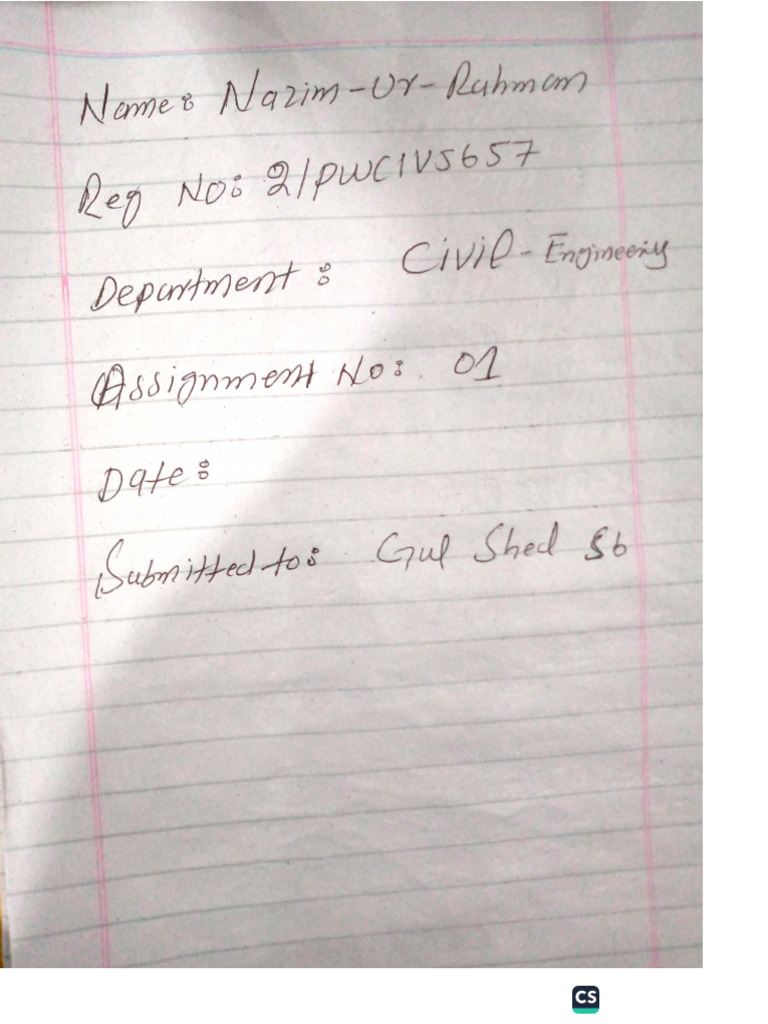 Name: Nazim-Ur-Rahman
Reg No: 21PWCIV5657
Department: Civil-Engineering
Assignment No: 01
Date:
Submitted to: Gul Shed Sb
CS